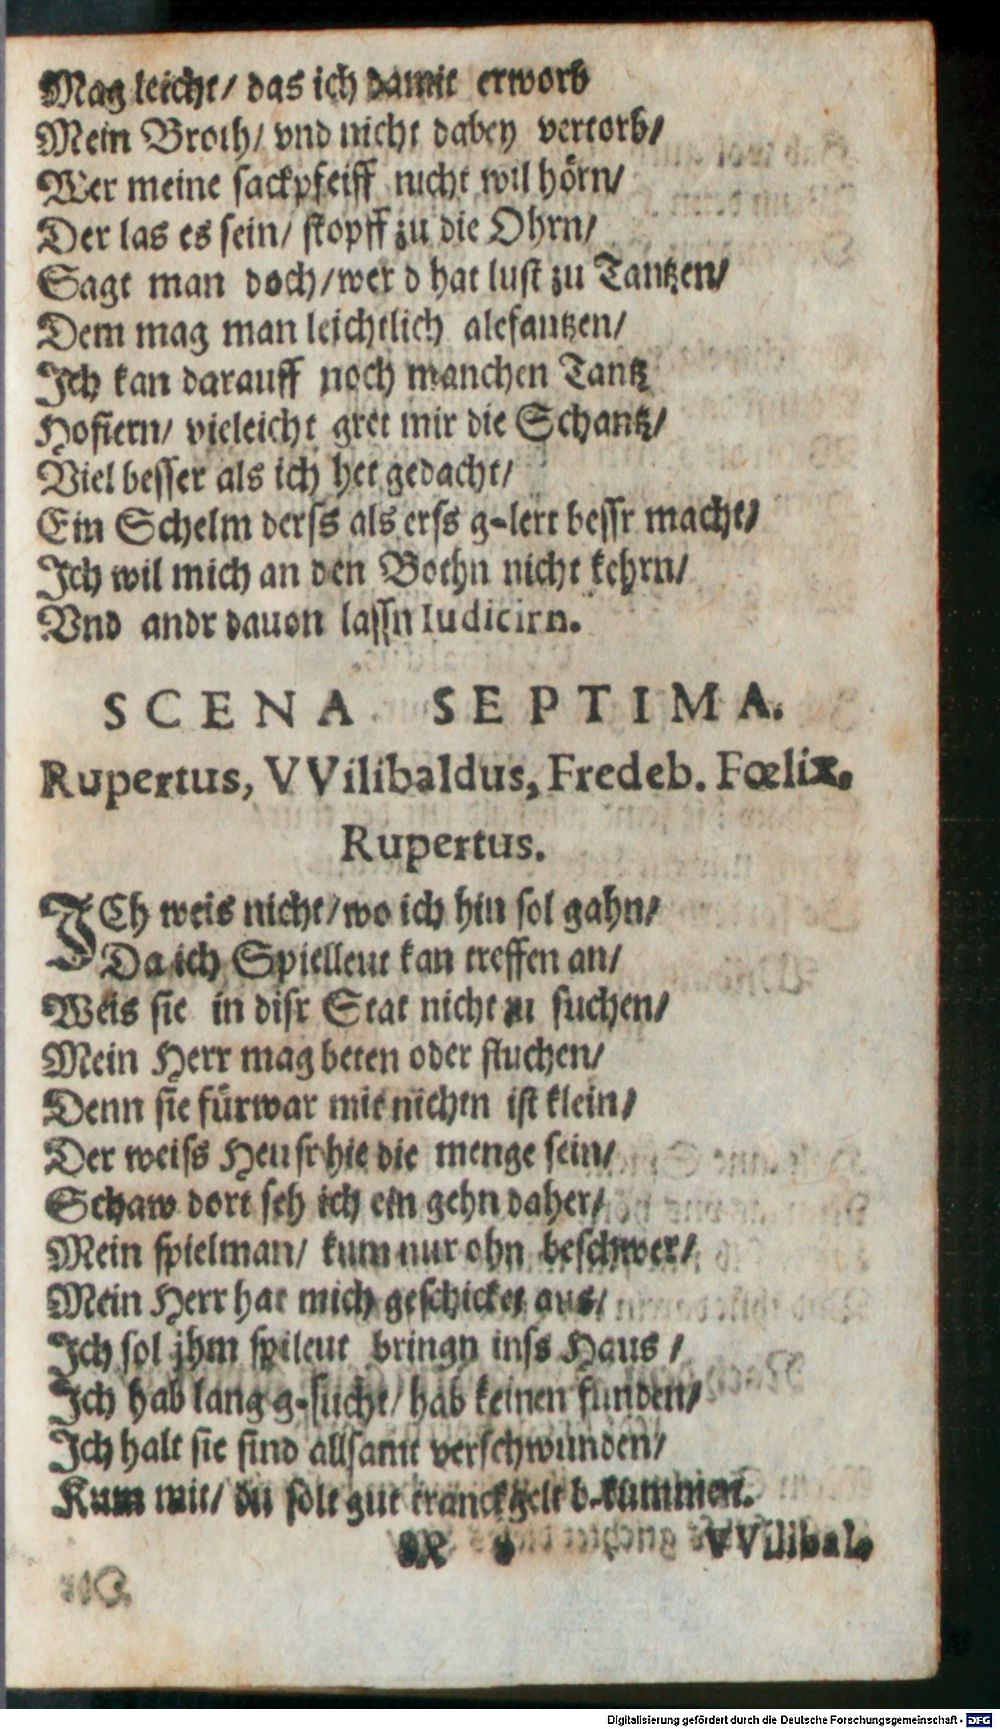 Mag leicht/ das ich damit erworb
Mein Broth/ vnd nicht dabey vertorb/
Wer meine sackpfeiff nicht wil hörn/
Der las es sein/ stopff zu die Ohrn/
Sagt man doch/wer d hat lust zu Tantzen/
Dem mag man leichtlich alefantzen/
Ich kan darauff noch manchen Tantz
Hofiern/ vieleicht gret mir die Schantz/
Viel besser als ich het gedacht/
Ein Schelm derss als erss g-lert bessr macht/
Ich wil mich an den Bothn nicht kehrn/
Vnd andr dauon lassn Iudicirn.
SCENA SEPTIMA.
Rupertus, VVilibaldus, Fredeb. Fœlix.
Rupertus.
ICh weis nicht/wo ich hin sol gahn/
Da ich Spielleut kan treffen an/
Weis sie in disr Stat nicht zu suchen/
Mein Herr mag beten oder fluchen/
Denn sie fürwar mit nichtn ist klein/
Der weiss Heusr hie die menge sein/
Schaw dort seh ich ein gehn daher/
Mein spielman/ kum nur ohn beschwer/
Mein Herr hat mich geschicket aus/
Ich sol jhm spileut bringn inss Haus /
Ich hab lang g-sucht/ hab keinen funden/
Ich halt sie sind allsamt verschwunden/
Kum mit/ du solt gut tranckgelt b-kummen.
VVilibal-
Digitalisierung gefördert durch die Deutsche Forschungsgemeinschaft - DFG